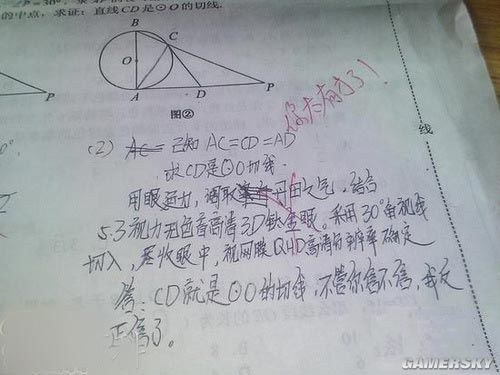 的中点，求证：直线CD是⊙O的切线.
B
C
O
A
D
P
P
图②
你太有才了！
(2) AC= 已知 AC=CD=AD
求CD是⊙O切线.
用眼 调取 丹田之气，结合
5.3视力 高清3D钛金眼。采用30°角视线
切入，尽收眼中，视网膜QHD高清 确定
答：CD就是⊙O的切线，不管你信不信，我反
正信了。
线
GAMERSKY